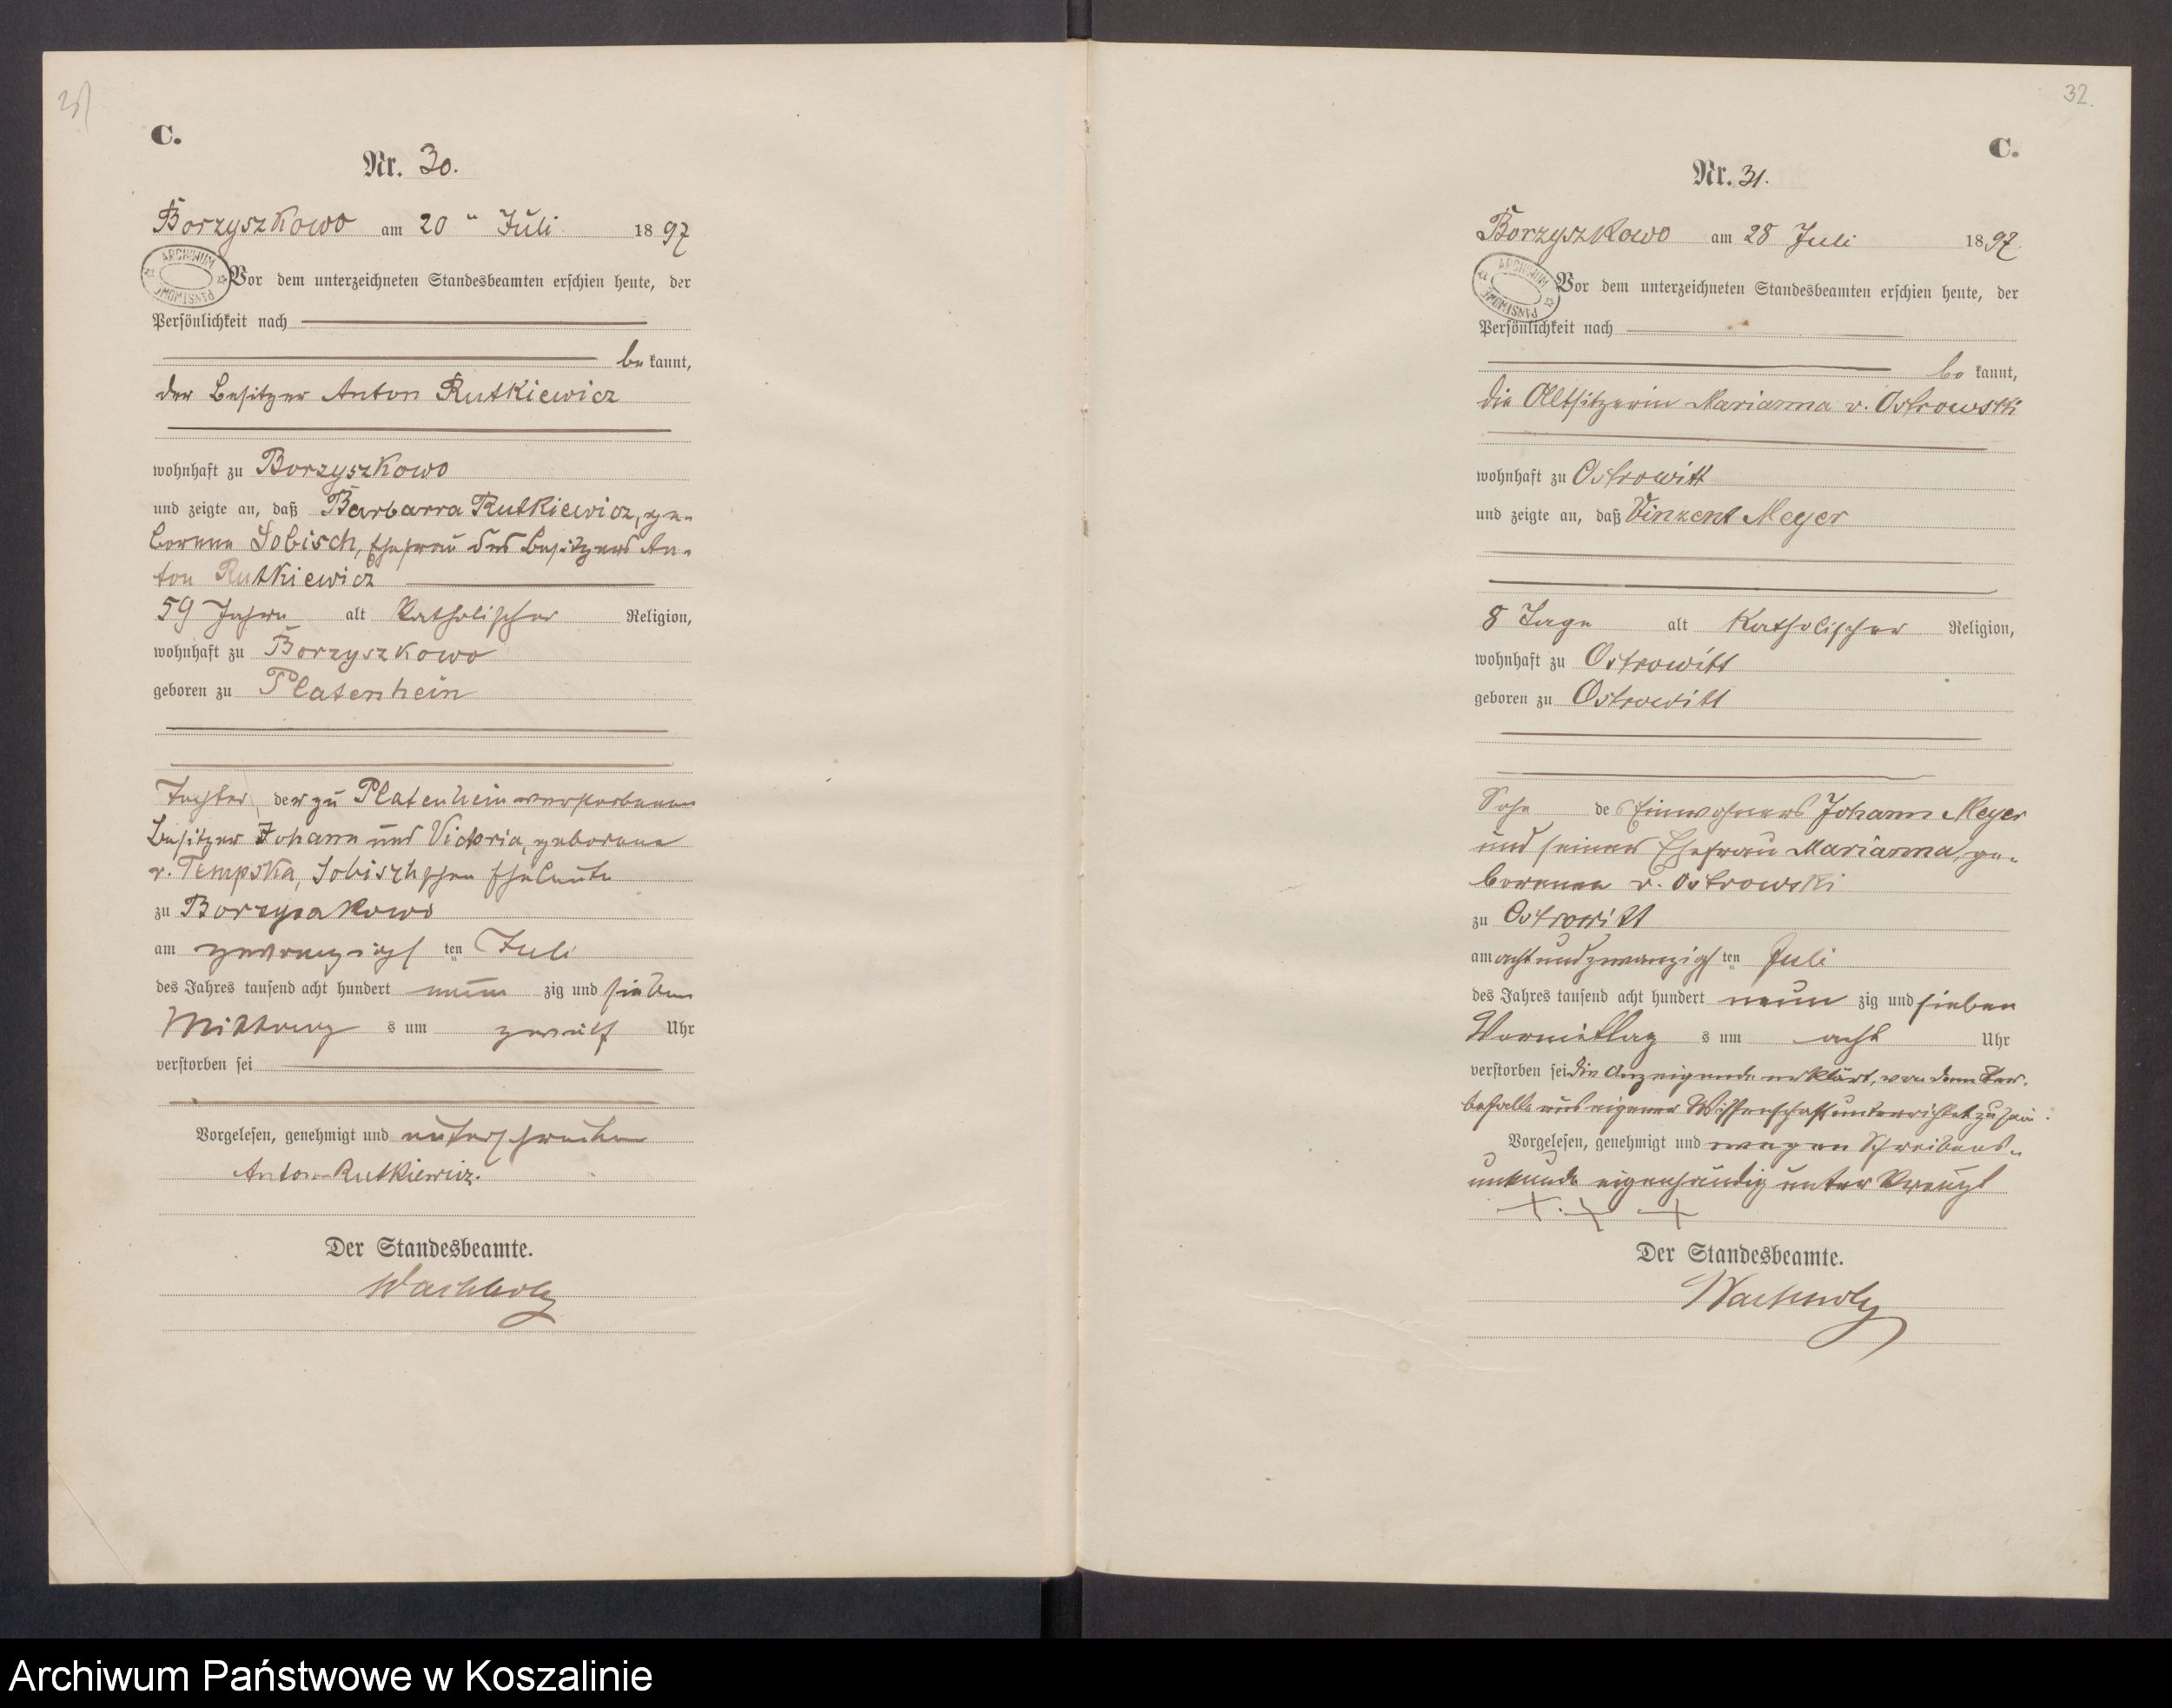 31
C.
Nr. 30.
Borzyszkowo am 20 ten Juli 1897
ARCHIWUM PAŃSTWOWE
Vor dem unterzeichneten Standesbeamten erschien heute, der
Persönlichkeit nach
be kannt,
der Besitzer Anton Rutkiewicz
wohnhaft zu Borzyszkowo
und zeigte an, daß Barbarra Rutkiewicz, ge-
borene Sobisch, Ehefrau des Besitzers An-
ton Rutkiewicz
59 Jahre alt Katholischer Religion,
wohnhaft zu Borzyszkowo
geboren zu Platenhein
Tochter der zu Platenhein verstorbenen
Besitzer Johann und Victoria, geborene
v. Tempska, Sobisch'schen Eheleute
zu Borzyszkowo
am zwanzigs ten Juli
des Jahres tausend acht hundert neun zig und sieben
Mittag s um zwölf Uhr
verstorben sei
Vorgelesen, genehmigt und unterschrieben
Anton Rutkiewicz.
Der Standesbeamte.
Wachholz
32.
C.
Nr. 31.
Borzyszkowo am 28 Juli 1897.
ARCHIWUM PAŃSTWOWE
Vor dem unterzeichneten Standesbeamten erschien heute, der
Persönlichkeit nach
be kannt,
die Altsitzerin Marianna v. Ostrowski
wohnhaft zu Ostrowitt
und zeigte an, daß Vinzent Meyer
8 Tage alt Katholischer Religion,
wohnhaft zu Ostrowitt
geboren zu Ostrowitt
Sohn des Einwohners Johann Meyer
und seiner Ehefrau Marianna, ge-
borenen v. Ostrowski
zu Ostrowitt
am achtundzwanzigs ten Juli
des Jahres tausend acht hundert neun zig und sieben
Vormittag s um acht Uhr
verstorben sei die Anzeigende erklärt, von dem Ster-
befalle aus eigener Wissenschaft unterrichtet zu sein.
Vorgelesen, genehmigt und wegen Schreibens-
unkunde eigenhändig unter Kreuzt
+ + +
Der Standesbeamte.
Wachholz
Archiwum Państwowe w Koszalinie